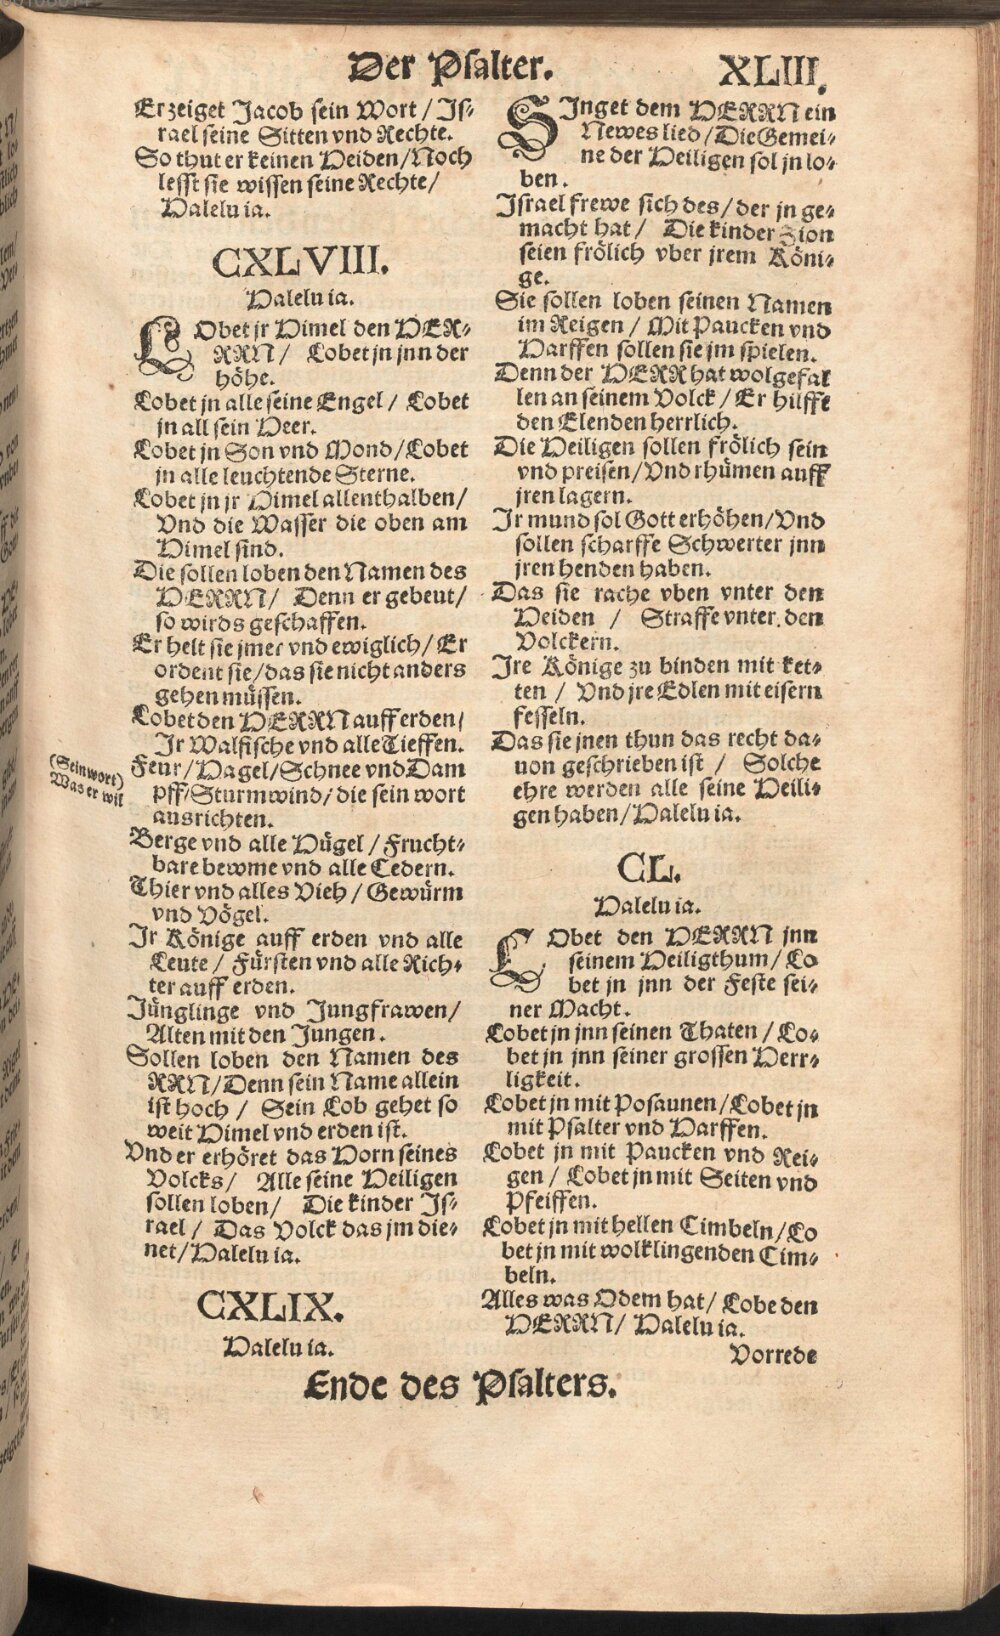 Der Psalter.
XLIII.
Erzeiget Jacob sein Wort / Js⸗
rael seine Sitten vnd Rechte.
So thut er keinen Heiden / Noch
lesst sie wissen seine Rechte /
Halelu ia.
CXLVIII.
Halelu ia.
LObet jr Himel den HER⸗
RRN / Lobet jn jnn der
höhe.
Lobet jn alle seine Engel / Lobet
jn all sein Heer.
Lobet jn Son vnd Mond / Lobet
jn alle leuchtende Sterne.
Lobet jn jr Himel allenthalben /
Vnd die Wasser die oben am
Himel sind.
Die sollen loben den Namen des
HERRN / Denn er gebeut /
so wirds geschaffen.
Er helt sie jmer vnd ewiglich / Er
ordent sie / das sie nicht anders
gehen müssen.
Lobet den HERRN auff erden /
Jr Walfische vnd alle Tieffen.
(Sein wort)
Was er wil
Feur / Hagel / Schnee vnd Dam
pff / Sturmwind / die sein wort
ausrichten.
Berge vnd alle Hügel / Frucht⸗
bare bewme vnd alle Cedern.
Thier vnd alles Vieh / Gewürm
vnd Vögel.
Jr Könige auff erden vnd alle
Leute / Fürsten vnd alle Rich⸗
ter auff erden.
Jünglinge vnd Jungfrawen /
Alten mit den Jungen.
Sollen loben den Namen des
RRN / Denn sein Name allein
ist hoch / Sein Lob gehet so
weit Himel vnd erden ist.
Vnd er erhöret das Horn seines
Volcks / Alle seine Heiligen
sollen loben / Die kinder Js⸗
rael / Das Volck das jm die⸗
net / Halelu ia.
CXLIX.
Halelu ia.
SJnget dem HERRN ein
Newes lied / Die Gemei⸗
ne der Heiligen sol jn lo⸗
ben.
Jsrael frewe sich des / der jn ge⸗
macht hat / Die kinder Zion
seien frölich vber jrem Köni⸗
ge.
Sie sollen loben seinen Namen
im Reigen / Mit Paucken vnd
Harffen sollen sie jm spielen.
Denn der HERR hat wolgefal
len an seinem Volck / Er hilffe
den Elenden herrlich.
Die Heiligen sollen frölich sein
vnd preisen / Vnd rhümen auff
jren lagern.
Jr mund sol Gott erhöhen / Vnd
sollen scharffe Schwerter jnn
jren henden haben.
Das sie rache vben vnter den
Heiden / Straffe vnter den
Volckern.
Jre Könige zu binden mit ket⸗
ten / Vnd jre Edlen mit eisern
fesseln.
Das sie jnen thun das recht da⸗
uon geschrieben ist / Solche
ehre werden alle seine Heili⸗
gen haben / Halelu ia.
CL.
Halelu ia.
LObet den HERRN jnn
seinem Heiligthum / Lo
bet jn jnn der Feste sei⸗
ner Macht.
Lobet jn jnn seinen Thaten / Lo⸗
bet jn jnn seiner grossen Herr⸗
ligkeit.
Lobet jn mit Posaunen / Lobet jn
mit Psalter vnd Harffen.
Lobet jn mit Paucken vnd Rei⸗
gen / Lobet jn mit Seiten vnd
Pfeiffen.
Lobet jn mit hellen Cimbeln / Lo
bet jn mit wolklingenden Cim⸗
beln.
Alles was Odem hat / Lobe den
HERRN / Halelu ia.
Vorrede
Ende des Psalters.